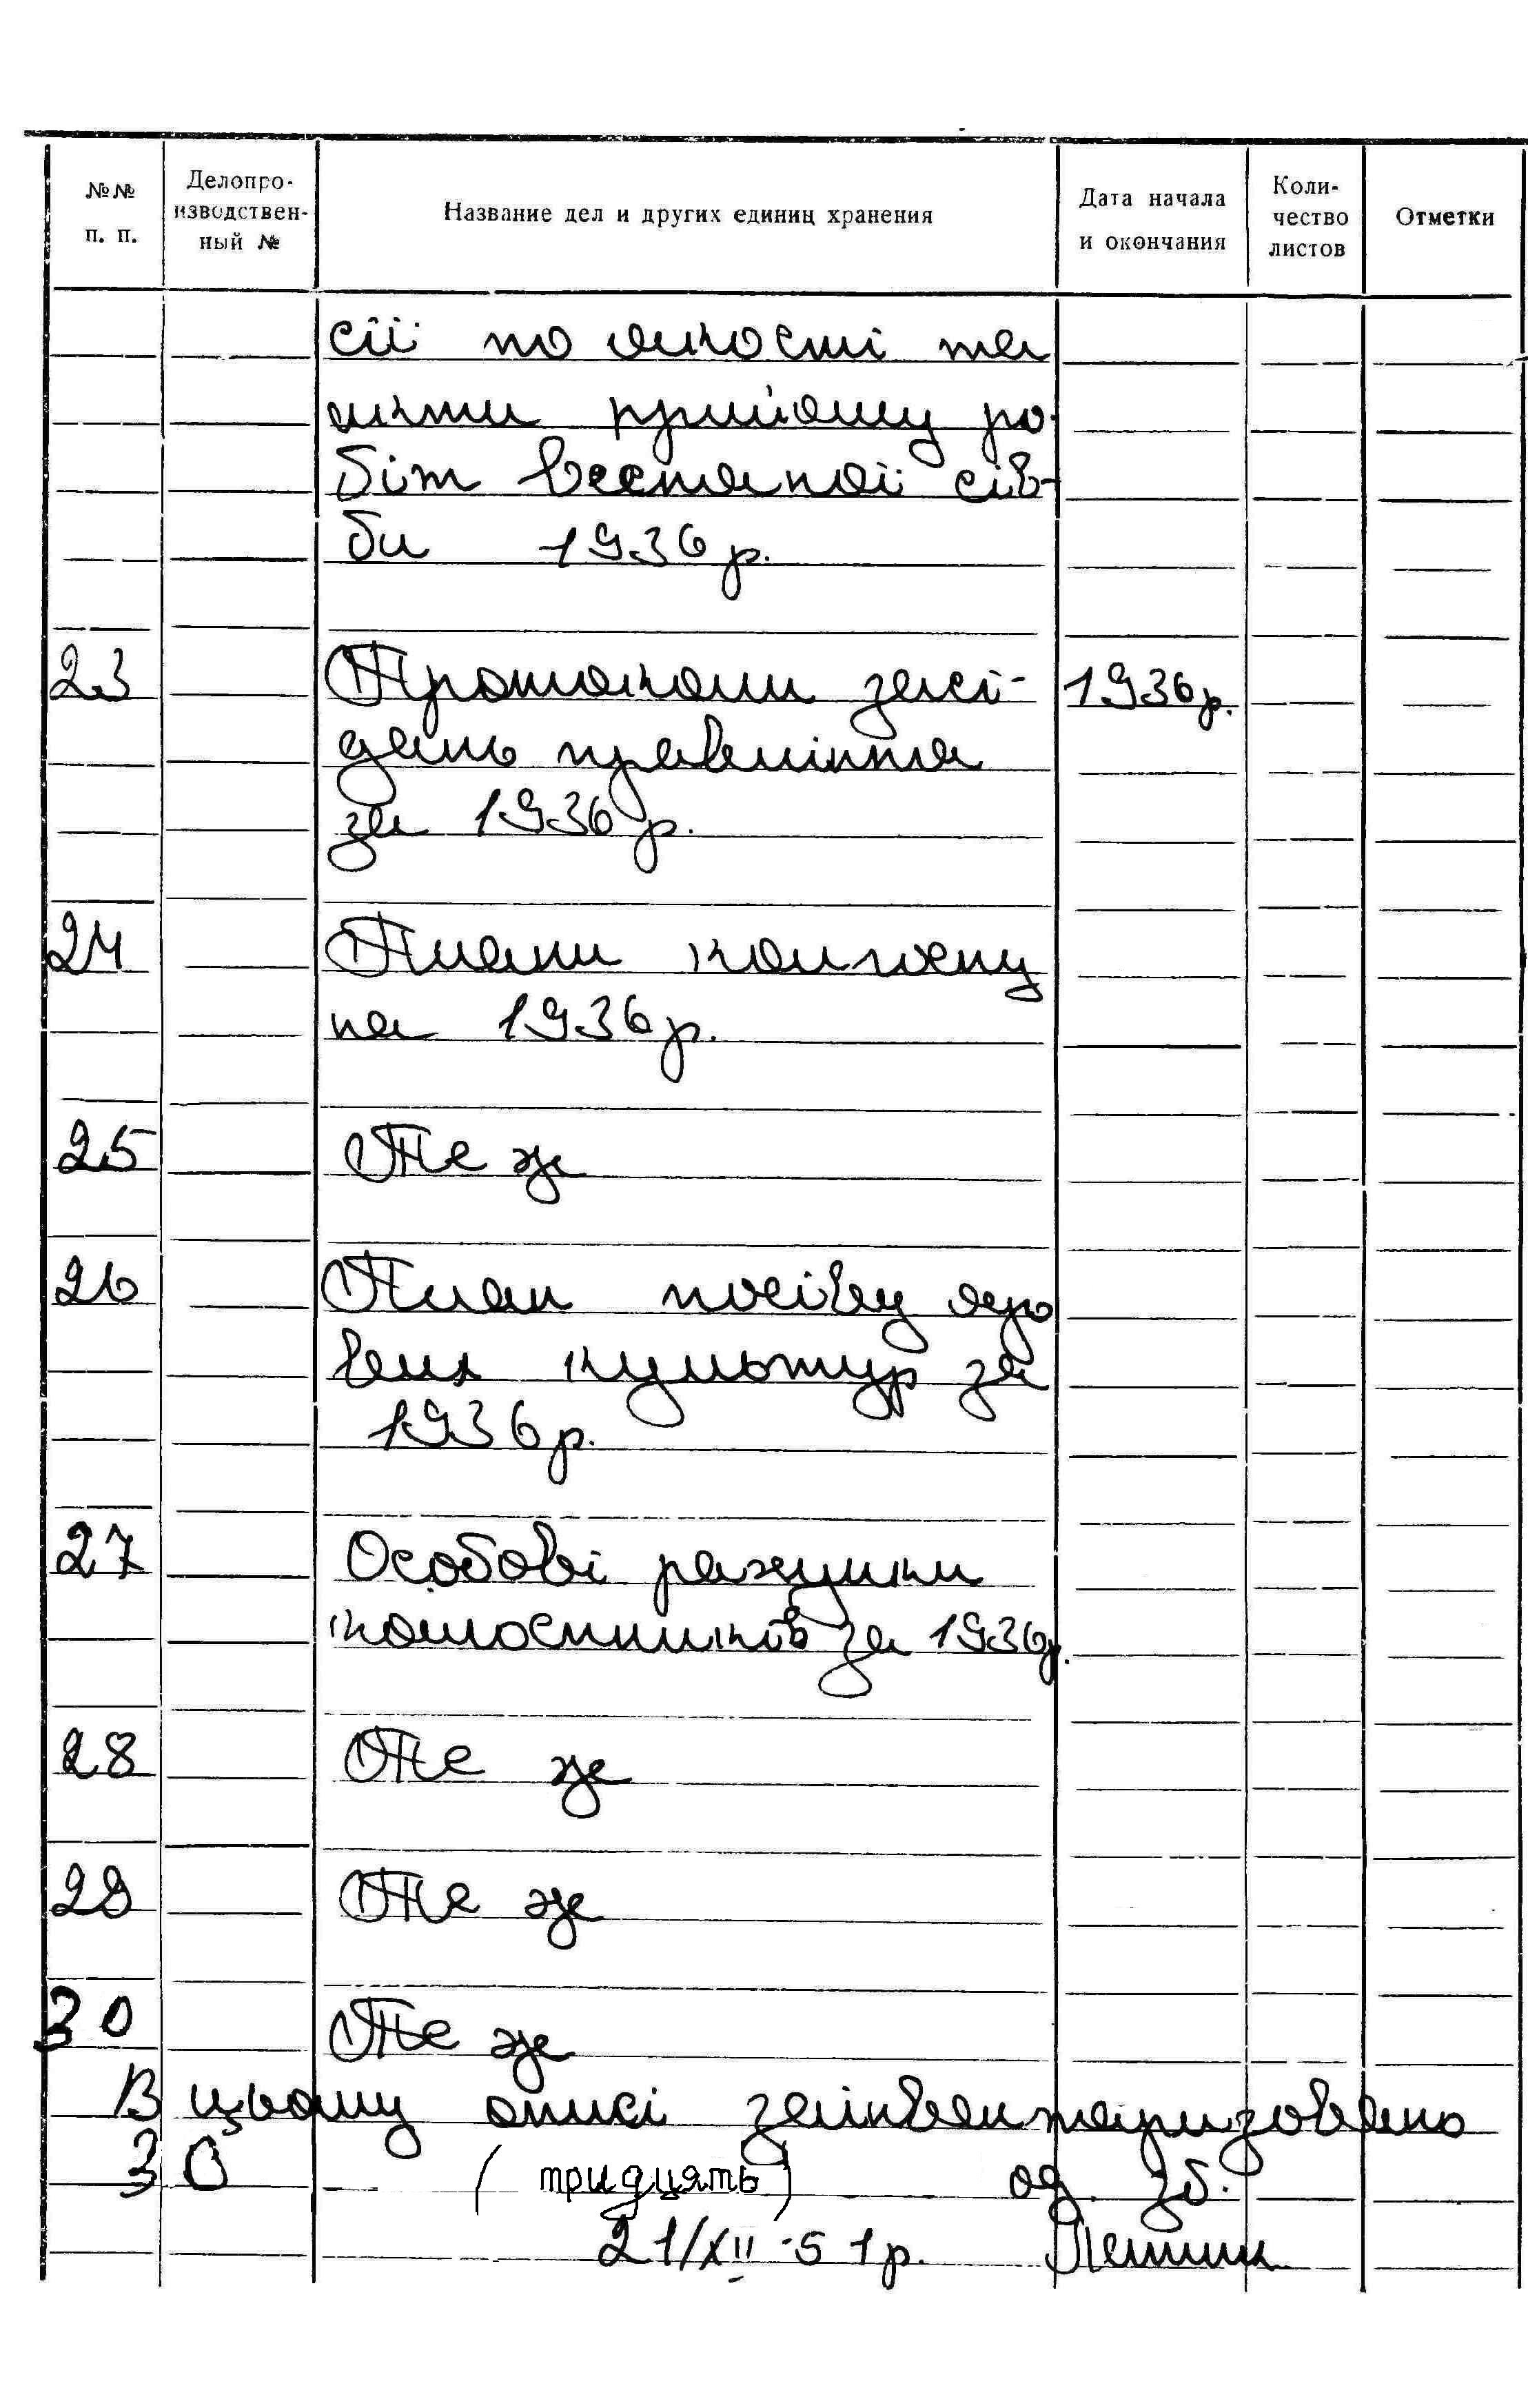 №№ п. п.
Делопро-
изводствен-
ный №
Название дел и других единиц хранения
Дата начала
и окончания
Коли-
чество
листов
Отметки
сії по якості та
акти прийому ро-
біт весняної сів-
би 1936 р.
23 Протоколи засі- 1936 р.
дань правління
за 1936 р.
24 Плани колгоспу
на 1936 р.
25 Те же
26 План посіву яро
вих культур за
1936 р.
27 Особові рахунки
колгоспників за 1936 р.
28 Те же
29 Те же
30 Те же
В цьому описі заінвентаризовано
30 (тридцять) од. зб.
21/XII-51 р.